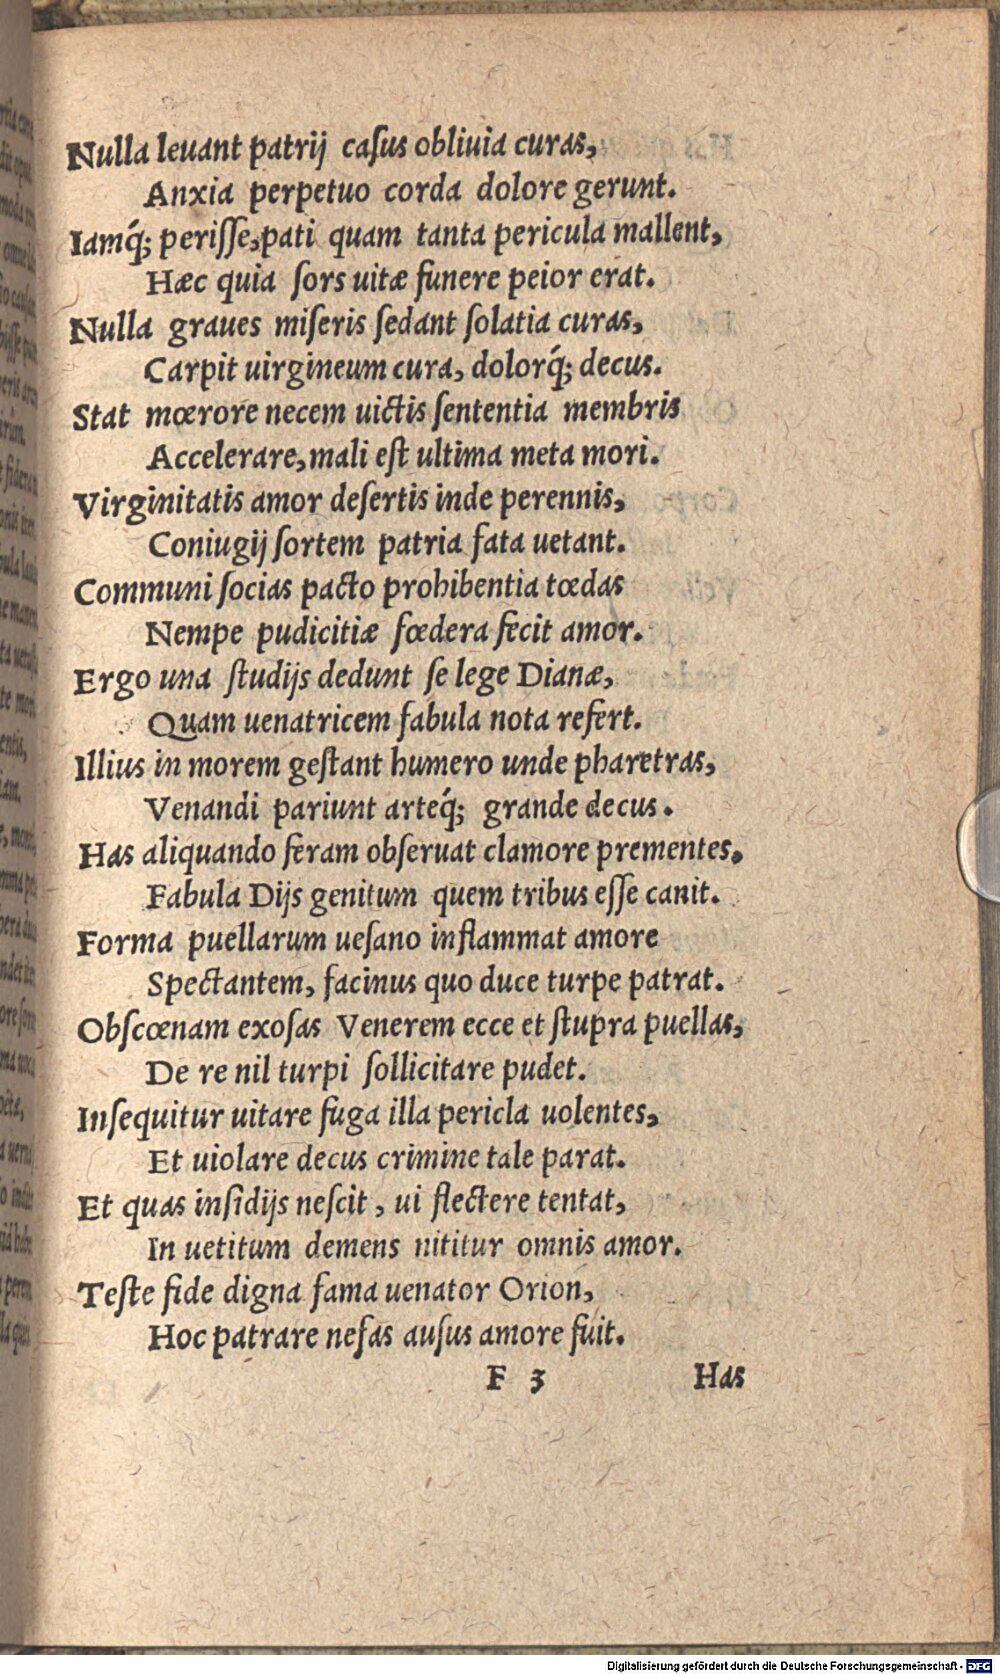 Nulla leuant patrij casus obliuia curas,
Anxia perpetuo corda dolore gerunt.
Iamq́; perisse, pati quam tanta pericula mallent,
Hæc quia sors uitæ funere peior erat.
Nulla graues miseris sedant solatia curas,
Carpit uirgineum cura, dolorq́; decus.
Stat mœrore necem uictis sententia membris
Accelerare, mali est ultima meta mori.
Virginitatis amor desertis inde perennis,
Coniugij sortem patria fata uetant.
Communi socias pacto prohibentia tœdas
Nempe pudicitiæ fœdera fecit amor.
Ergo una studijs dedunt se lege Dianæ,
Quam uenatricem fabula nota refert.
Illius in morem gestant humero unde pharetras,
Venandi pariunt arteq́; grande decus.
Has aliquando feram obseruat clamore prementes,
Fabula Dijs genitum quem tribus esse canit.
Forma puellarum uesano inflammat amore
Spectantem, facinus quo duce turpe patrat.
Obscœnam exosas Venerem ecce et stupra puellas,
De re nil turpi sollicitare pudet.
Insequitur uitare fuga illa pericla uolentes,
Et uiolare decus crimine tale parat.
Et quas insidijs nescit, ui flectere tentat,
In uetitum demens nititur omnis amor.
Teste fide digna fama uenator Orion,
Hoc patrare nefas ausus amore fuit.
F 3 Has
Digitalisierung gefördert durch die Deutsche Forschungsgemeinschaft - DFG